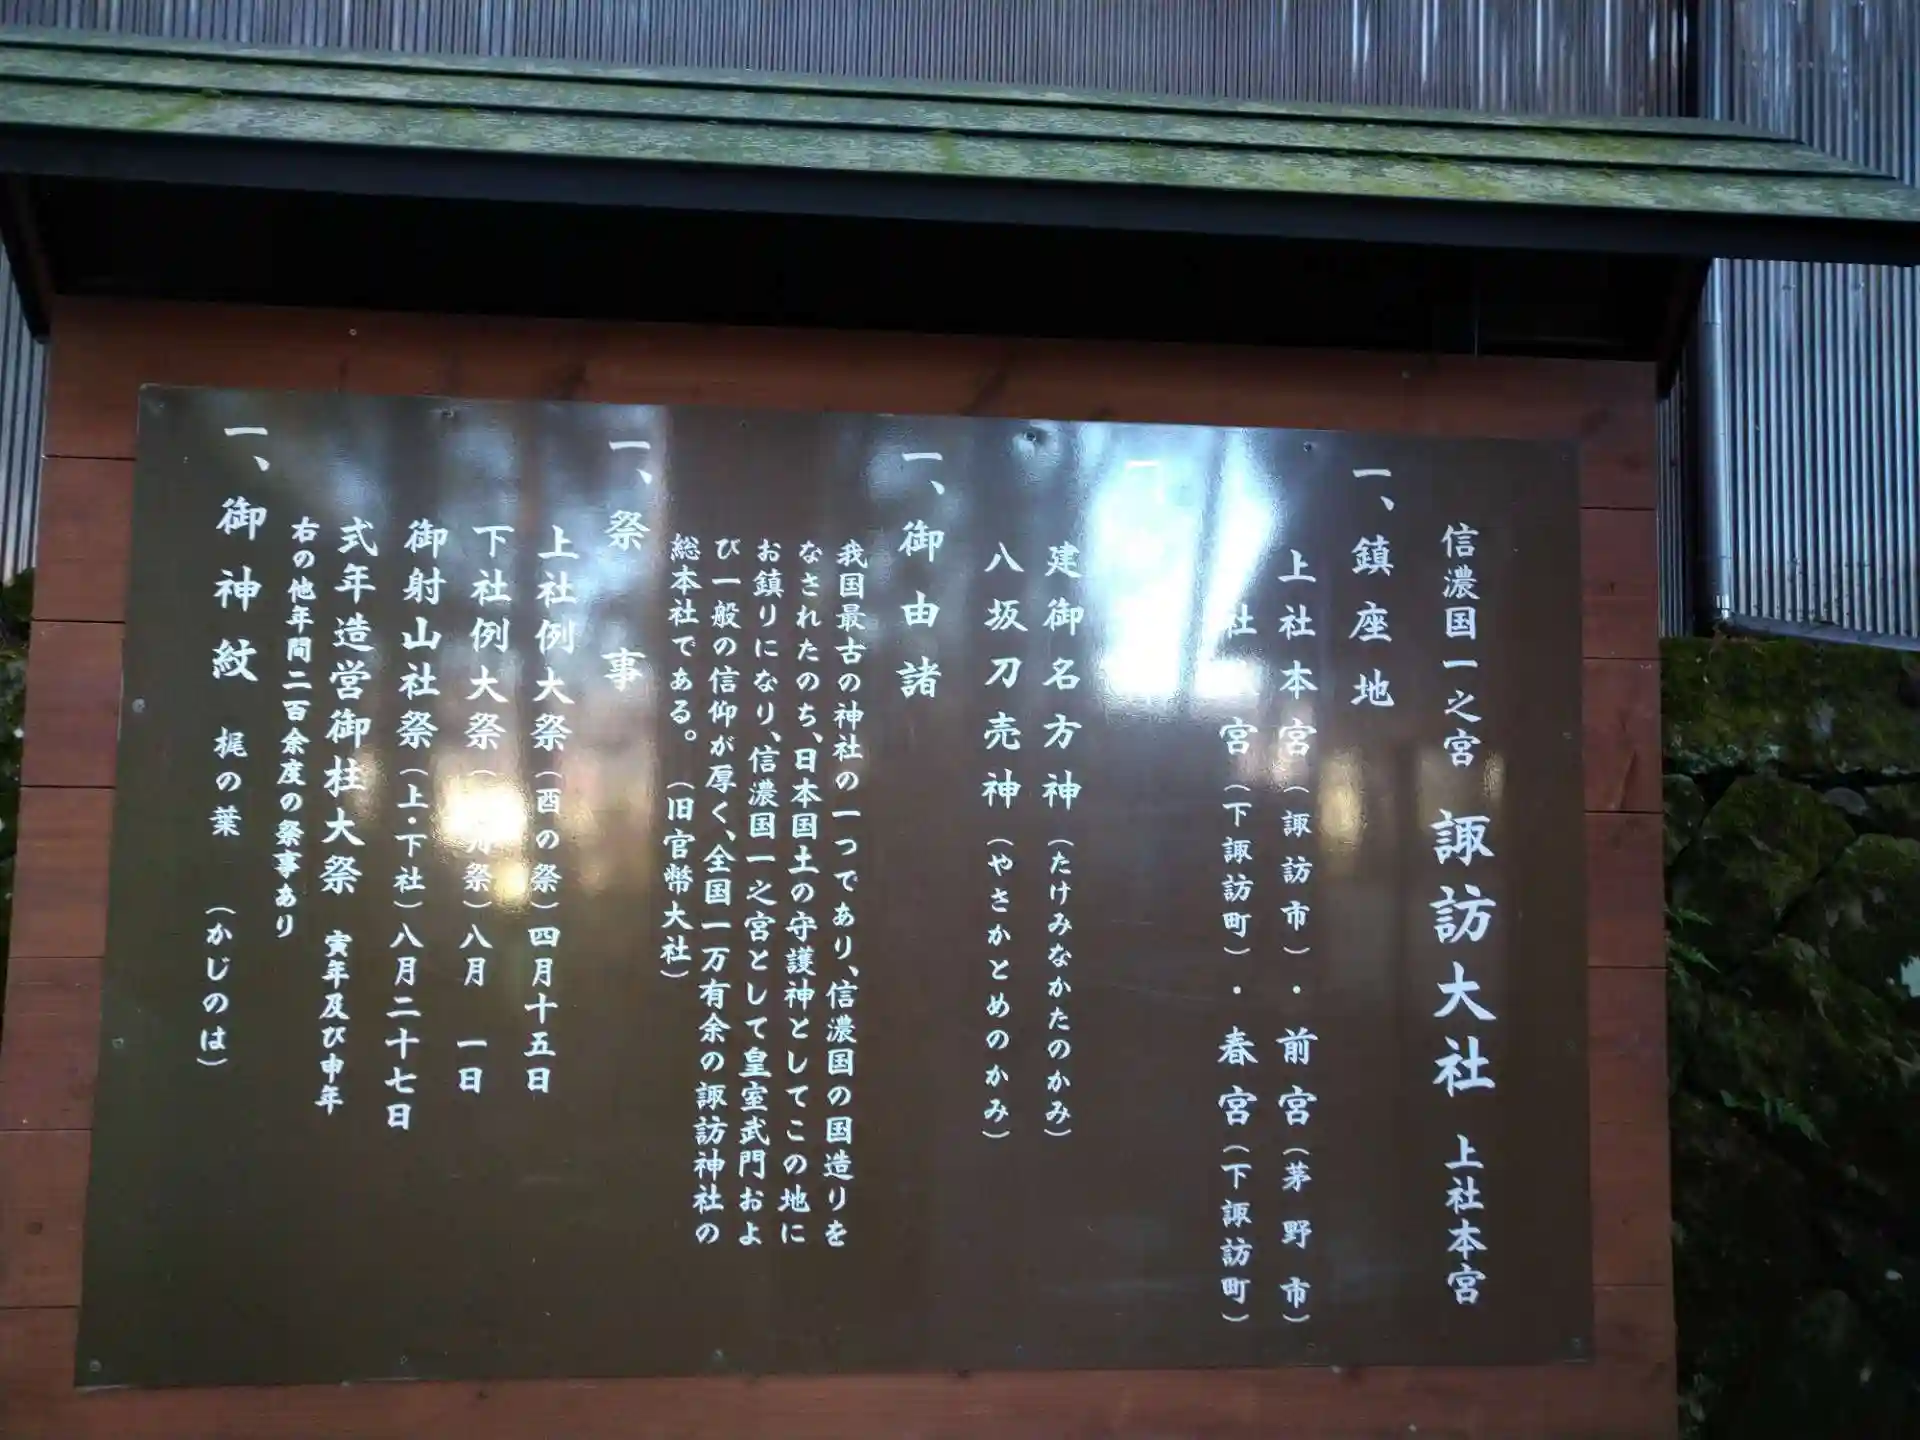 信濃国一之宮 諏訪大社 上社本宮
一、鎮座地
上社本宮(諏訪市)・前宮(茅野市)
社 宮(下諏訪町)・春宮(下諏訪町)
一
建御名方神(たけみなかたのかみ)
八坂刀売神(やさかとめのかみ)
一、御由諸
我国最古の神社の一つであり、信濃国の国造りを
なされたのち、日本国土の守護神としてこの地に
お鎮りになり、信濃国一之宮として皇室武門およ
び一般の信仰が厚く、全国一万有余の諏訪神社の
総本社である。(旧官幣大社)
一、祭事
上社例大祭(酉の祭)四月十五日
下社例大祭(舟祭)八月 一日
御射山社祭(上・下社)八月二十七日
式年造営御柱大祭 寅年及び申年
右の他年間二百余度の祭事あり
一、御神紋 梶の葉 (かじのは)